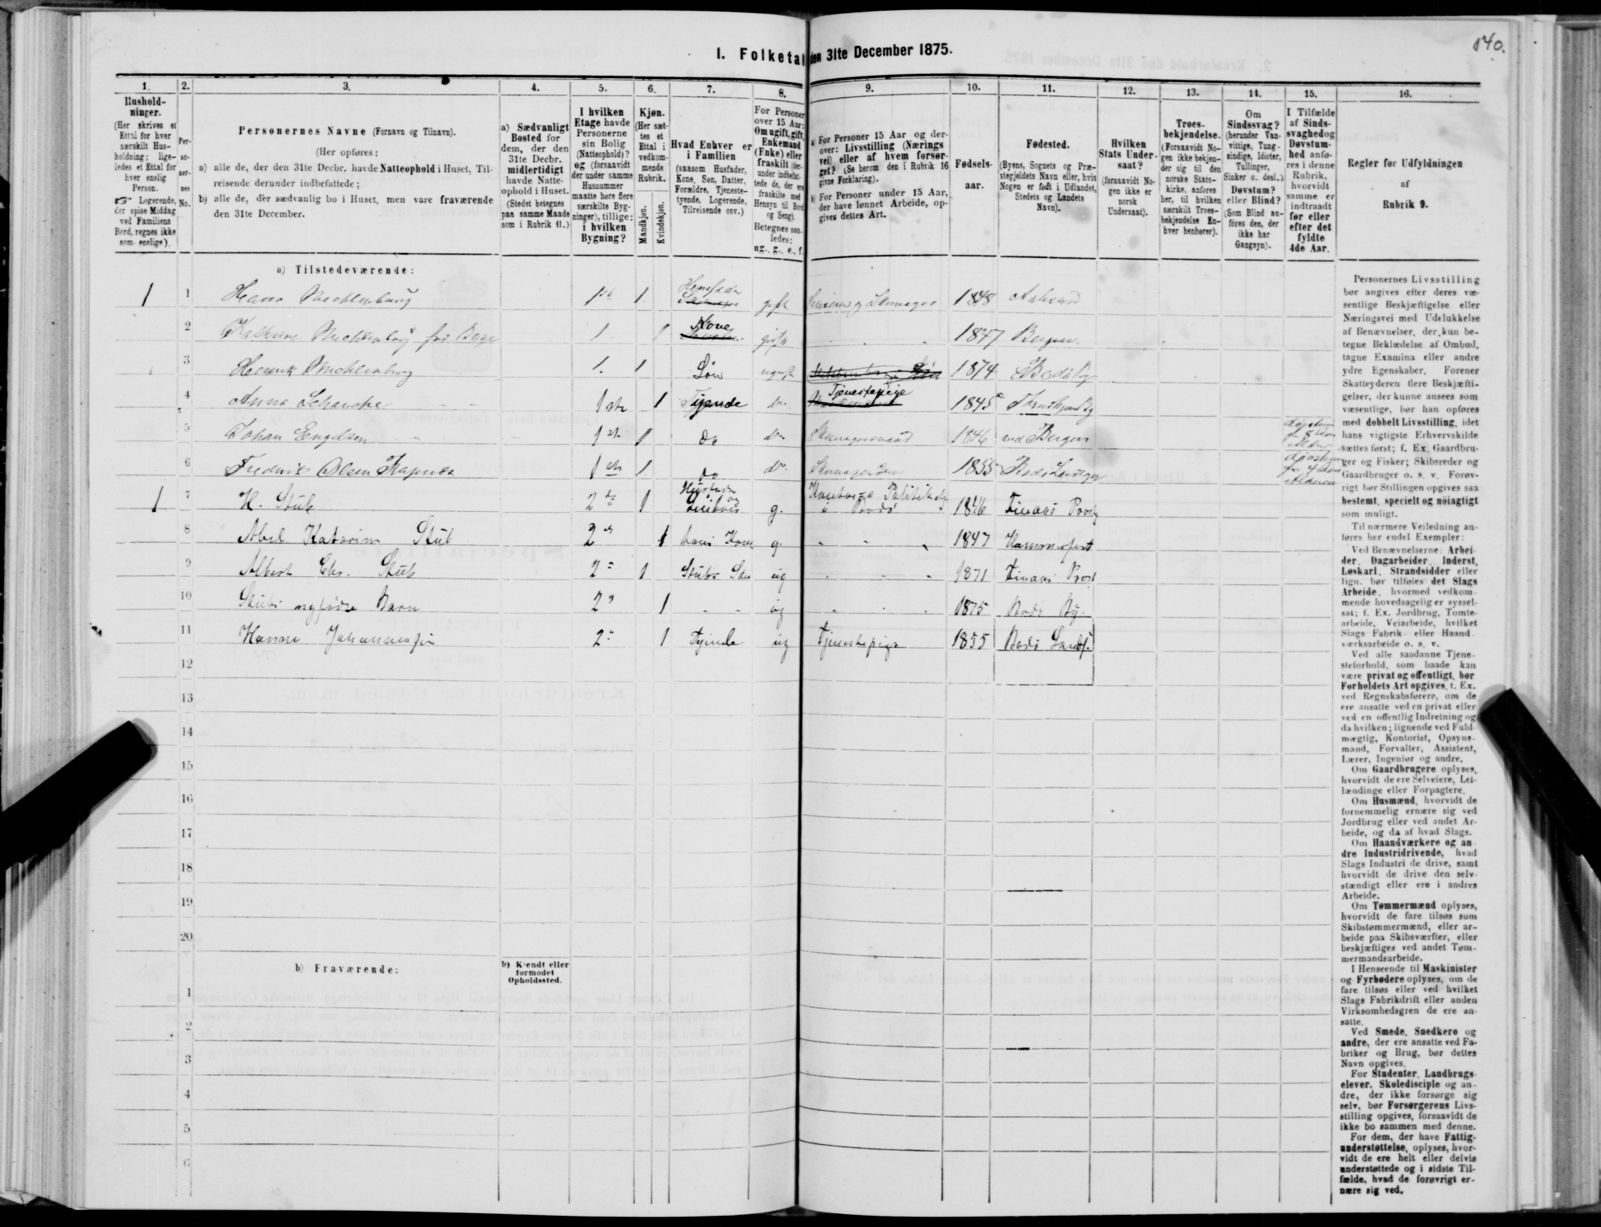 140.
I. Folketal den 31te December 1875.
1. 2. 3. 4. 5. 6. 7. 8. 9. 10. 11. 12. 13. 14. 15. 16.
Hushold-
ninger.
(Her skrives et
Ettal for hver
særskilt Hus-
holdning; lige-
ledes et Ettal for
hver enslig
Person.
☞ Logerende,
der spise Middag
ved Familiens
Bord, regnes ikke
som enslige).
Per-
so-
ner-
nes
No.
Personernes Navne (Fornavn og Tilnavn).
(Her opføres:
a) alle de, der den 31te Decbr. havde Natteophold i Huset, Til-
reisende derunder indbefattede;
b) alle de, der sædvanlig bo i Huset, men vare fraværende
den 31te December.
a) Sædvanligt
Bosted for
dem, der den
31te Decbr.
midlertidigt
havde Natte-
ophold i Huset.
(Stedet betegnes
paa samme Maade
som i Rubrik 11.)
I hvilken
Etage havde
Personerne
sin Bolig
(Natteophold)?
og (forsaavidt
der under samme
Husnummer
maatte høre flere
særskilte Byg-
ninger), tillige:
i hvilken
Bygning?
Kjøn.
(Her sæt-
tes et
Ettal i
vedkom-
mende
Rubrik.
Mandkjøn.
Kvindekjøn.
Hvad Enhver er
i Familien
(saasom Husfader,
Kone, Søn, Datter,
Forældre, Tjeneste-
tyende, Logerende,
Tilreisende osv.)
For Personer
over 15 Aar:
Om ugift, gift,
Enkemand
(Enke) eller
fraskilt
Hensyn til Bord
og Seng).
Betegnes saa-
ledes:
ug., g., e., f.
a) For Personer 15 Aar og der-
over: Livsstilling (Nærings
vei) eller af hvem forsør-
get? (Se herom den i Rubrik 16
givne Forklaring).
b) For Personer under 15 Aar,
der have lønnet Arbeide, op-
gives dettes Art.
Fødsels-
aar.
Fødested.
(Byens, Sognets og Præ-
stegjeldets Navn eller, hvis
Nogen er født i Udlandet,
Stedets og Landets
Navn).
Hvilken
Stats Under-
saat?
(forsaavidt No-
gen ikke er
norsk
Undersaat).
Troes-
bekjendelse.
(Forsaavidt No-
gen ikke bekjen-
der sig til den
norske Stats-
kirke, anføres
her, til hvilken
særskilt Troes-
bekjendelse En-
hver henhører).
Om
Sindssvag?
(herunder Van-
vittige, Tung-
sindige, Idioter,
Tullinger,
Sinker o. desl.)
Døvstum?
eller Blind?
(Som Blind an-
føres den, der
ikke har
Gangsyn).
I Tilfælde
af Sinds-
svaghed og
Døvstum-
hed anfø-
res i denne
Rubrik,
hvorvidt
samme er
indtraadt
før eller
efter det
fyldte
4de Aar.
Regler for Udfyldningen
af
Rubrik 9.
a) Tilstedeværende:
1 1 Hans Mechlenburg 1st 1 gift 1848
2 Mechlenburg 1 1 Kone gift 1847 Bergen
3 Henrik Mechlenburg 1 1 Søn ugift 1874 Bodø By
4 Anna Schanche 1ste 1 Tyende do Tjenestepige 1845
5 Johan Engelsen 1st 1 do do Skomagersvend 1846 ved Bergen
6 Fredrik Olsen 1ste 1 do do 1855
1 7 H. Stub 2de 1 Husfader g. Bodø 1846
8 Abel Katarina Stub 2de 1 hans Kone g. 1847 Hammerfest
9 Albert Chr. Stub 2 1 Stubs Søn ug 1871
10 Stubs nyfødte Barn 2 1 ug 1875 Bodø By.
11 Hanna Johannesen 2 1 Tyende ug Tjenestepige 1855 Bodø Lands.
12
13
14
15
16
17
18
19
20
b) Fraværende:
b) Kjendt eller
formodet
Opholdssted.
1
2
3
4
5
6
Personernes Livsstilling
bør angives efter deres væ-
sentlige Beskjæftigelse eller
Næringsvei med Udelukkelse
af Benævnelser, der kun be-
tegne Beklædelse af Ombud,
tagne Examina eller andre
ydre Egenskaber. Forener
Skatteyderen flere Beskjæfti-
gelser, der kunne ansees som
væsentlige, bør han opføres
med dobbelt Livsstilling, idet
hans vigtigste Erhvervskilde
sættes først; f. Ex. Gaardbru-
ger og Fisker; Skibsreder og
Gaardbruger o. s. v. Forøv-
rigt bør Stillingen opgives saa
bestemt, specielt og nøiagtigt
som muligt.
Til nærmere Veiledning an-
føres her endel Exempler:
Ved Benævnelserne: Arbei-
der, Dagarbeider, Inderst,
Løskarl, Strandsidder eller
lign. bør tilføies det Slags
Arbeide, hvormed vedkom-
mende hovedsagelig er syssel-
sat; f. Ex. Jordbrug, Tomte-
arbeide, Veiarbeide, hvilket
Slags Fabrik- eller Haand-
værksarbeide o. s. v.
Ved alle saadanne Tjene-
steforhold, som baade kan
være privat og offentligt, bør
Forholdets Art opgives, t. Ex.
ved Regnskabsførere, om de
ere ansatte ved en privat eller
ved en offentlig Indretning og
da hvilken; lignende ved Fuld-
mægtig, Kontorist, Opsyns-
mand, Forvalter, Assistent,
Lærer, Ingeniør og andre.
Om Gaardbrugere oplyses,
hvorvidt de ere Selveiere, Lei-
lændinge eller Forpagtere.
Om Husmænd, hvorvidt de
fornemmelig ernære sig ved
Jordbrug eller ved andet Ar-
beide, og da af hvad Slags.
Om Haandværkere og an-
dre Industridrivende, hvad
Slags Industri de drive, samt
hvorvidt de drive den selv-
stændigt eller ere i andres
Arbeide.
Om Tømmermænd oplyses,
hvorvidt de fare tilsøs som
Skibstømmermænd, eller ar-
beide paa Skibsværfter, eller
beskjæftiges ved andet Tøm-
mermandsarbeide.
I Henseende til Maskinister
og Fyrbødere oplyses, om de
fare tilsøs eller ved hvilket
Slags Fabrikdrift eller anden
Virksomhedsgren de ere an-
satte.
Ved Smede, Snedkere og
andre, der ere ansatte ved Fa-
briker og Brug, bør dettes
Navn opgives.
For Studenter, Landbrugs-
elever, Skoledisciple og an-
dre, der ikke forsørge sig
selv, bør Forsørgerens Livs-
stilling opgives, forsaavidt de
ikke bo sammen med denne.
For dem, der have Fattig-
understøttelse, oplyses, hvor-
vidt de ere helt eller delvis
understøttede og i sidste Til-
fælde, hvad de forøvrigt er-
nære sig ved.